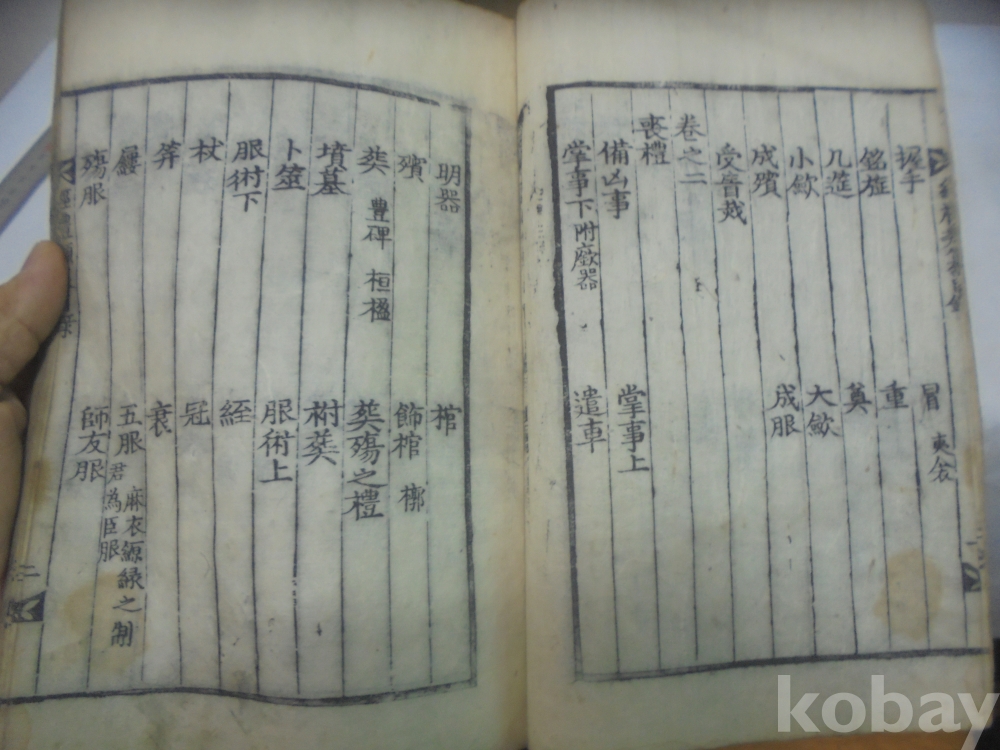 握手 冒 夾衾
銘旌 重
几筵 奠
小歛 大歛
成殯 成服
受眚烖
卷之二
喪禮
備凶事 掌事上
掌事下 附廞器 遣車
明器 棺
殯 飾棺 槨
葬 豊碑 桓楹 葬殤之禮
墳墓 祔葬
卜筮 服術上
服術下 絰
杖 冠
笄 衰
屨 五服 君為臣服 麻衣縓緣之制
殤服 師友服
二
kobay